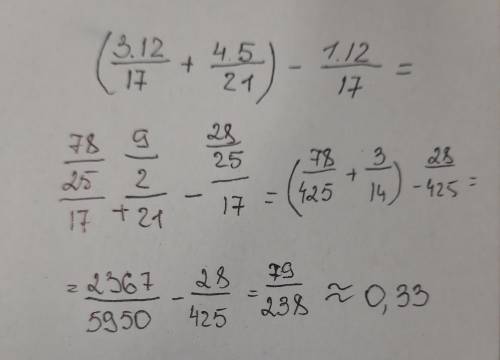 (3.12/17 + 4.5/21) - 1.12/17 =
78/25/17 + 9/2/21 - 28/25/17 = (78/425 + 3/14) - 28/425 =
= 2367/5950 - 28/425 = 79/238 ≈ 0,33